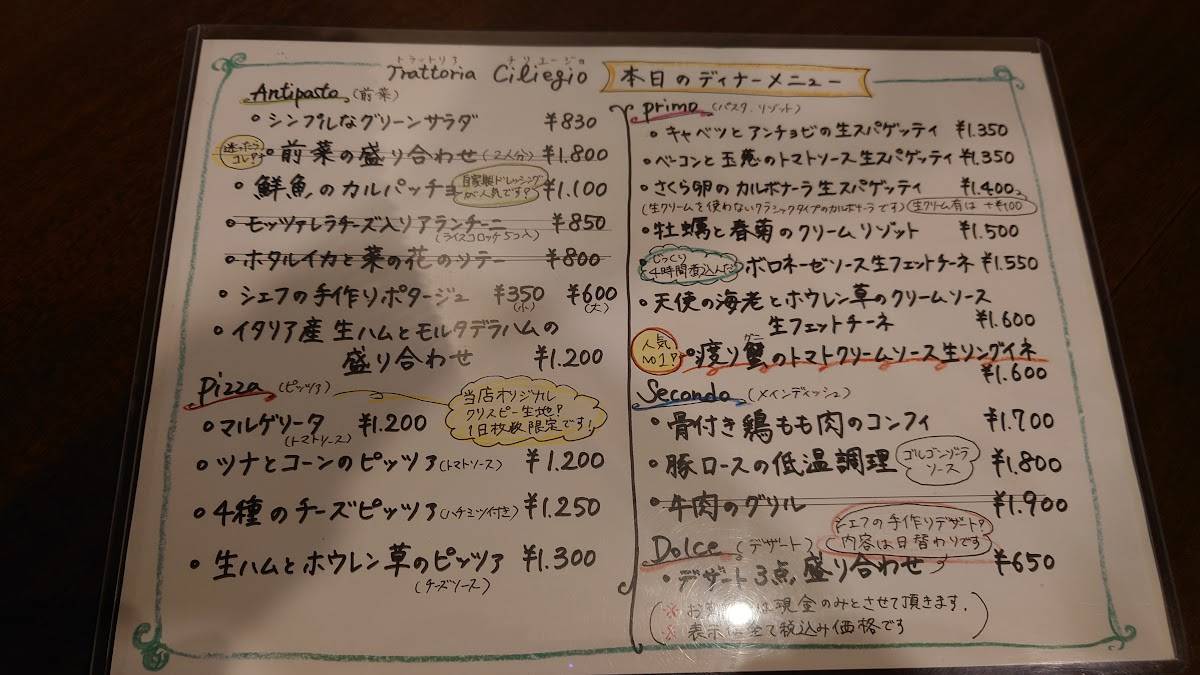 トラットリア チリエージョ
Trattoria Ciliegio
本日のディナーメニュー
Antipasto (前菜)
・シンプルなグリーンサラダ ¥830
迷ったら
コレ!
・前菜の盛り合わせ(2人分) ¥1.800
・鮮魚のカルパッチョ ¥1.100
自家製ドレッシング
が人気です!
・モッツァレラチーズ入リアランチーニ ¥850
(ライスコロッケ5コ入)
・ホタルイカと菜の花のソテー ¥800
・シェフの手作りポタージュ ¥350 ¥600
(小) (大)
・イタリア産 生ハムとモルタデラハムの
盛り合わせ ¥1.200
Pizza (ピッツァ)
当店オリジナル
クリスピー生地!
1日枚数限定です!
・マルゲリータ ¥1.200
(トマトソース)
・ツナとコーンのピッツァ(トマトソース) ¥1.200
・4種のチーズピッツァ(ハチミツ付き) ¥1.250
・生ハムとホウレン草のピッツァ ¥1.300
(チーズソース)
Primo (パスタ、リゾット)
・キャベツとアンチョビの生スパゲッティ ¥1.350
・ベーコンと玉葱のトマトソース生スパゲッティ ¥1.350
・さくら卵のカルボナーラ生スパゲッティ ¥1.400
(生クリームを使わないクラシックタイプのカルボナーラです) 生クリーム有は +¥100
・牡蠣と春菊のクリームリゾット ¥1.500
じっくり
4時間煮込んだ
・ボロネーゼソース生フェットチーネ ¥1.550
・天使の海老とホウレン草のクリームソース
生フェットチーネ ¥1.600
人気
No1!
カニ
・渡り蟹のトマトクリームソース生リングイネ
¥1.600
Secondo (メインディッシュ)
・骨付き鶏もも肉のコンフィ ¥1.700
・豚ロースの低温調理 ¥1.800
ゴルゴンゾーラ
ソース
・牛肉のグリル ¥1.900
シェフの手作りデザート!
内容は日替わりです
Dolce (デザート)
・デザート3点盛り合わせ ¥650
※ お は現金のみとさせて頂きます。
※ 表示は全て税込み価格です